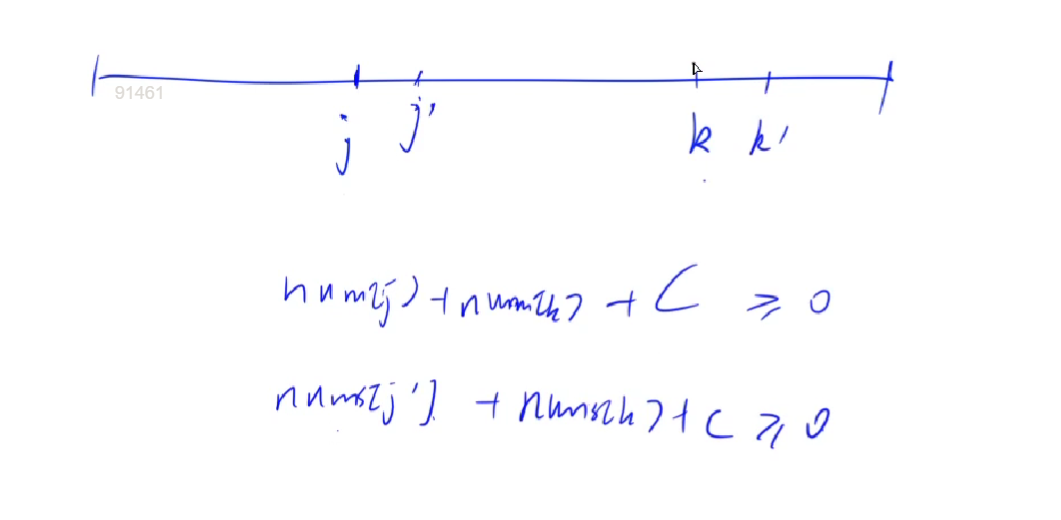 91461
j j' k k'
nums[j] + nums[k] + C ≥ 0
nums[j'] + nums[k] + C ≥ 0